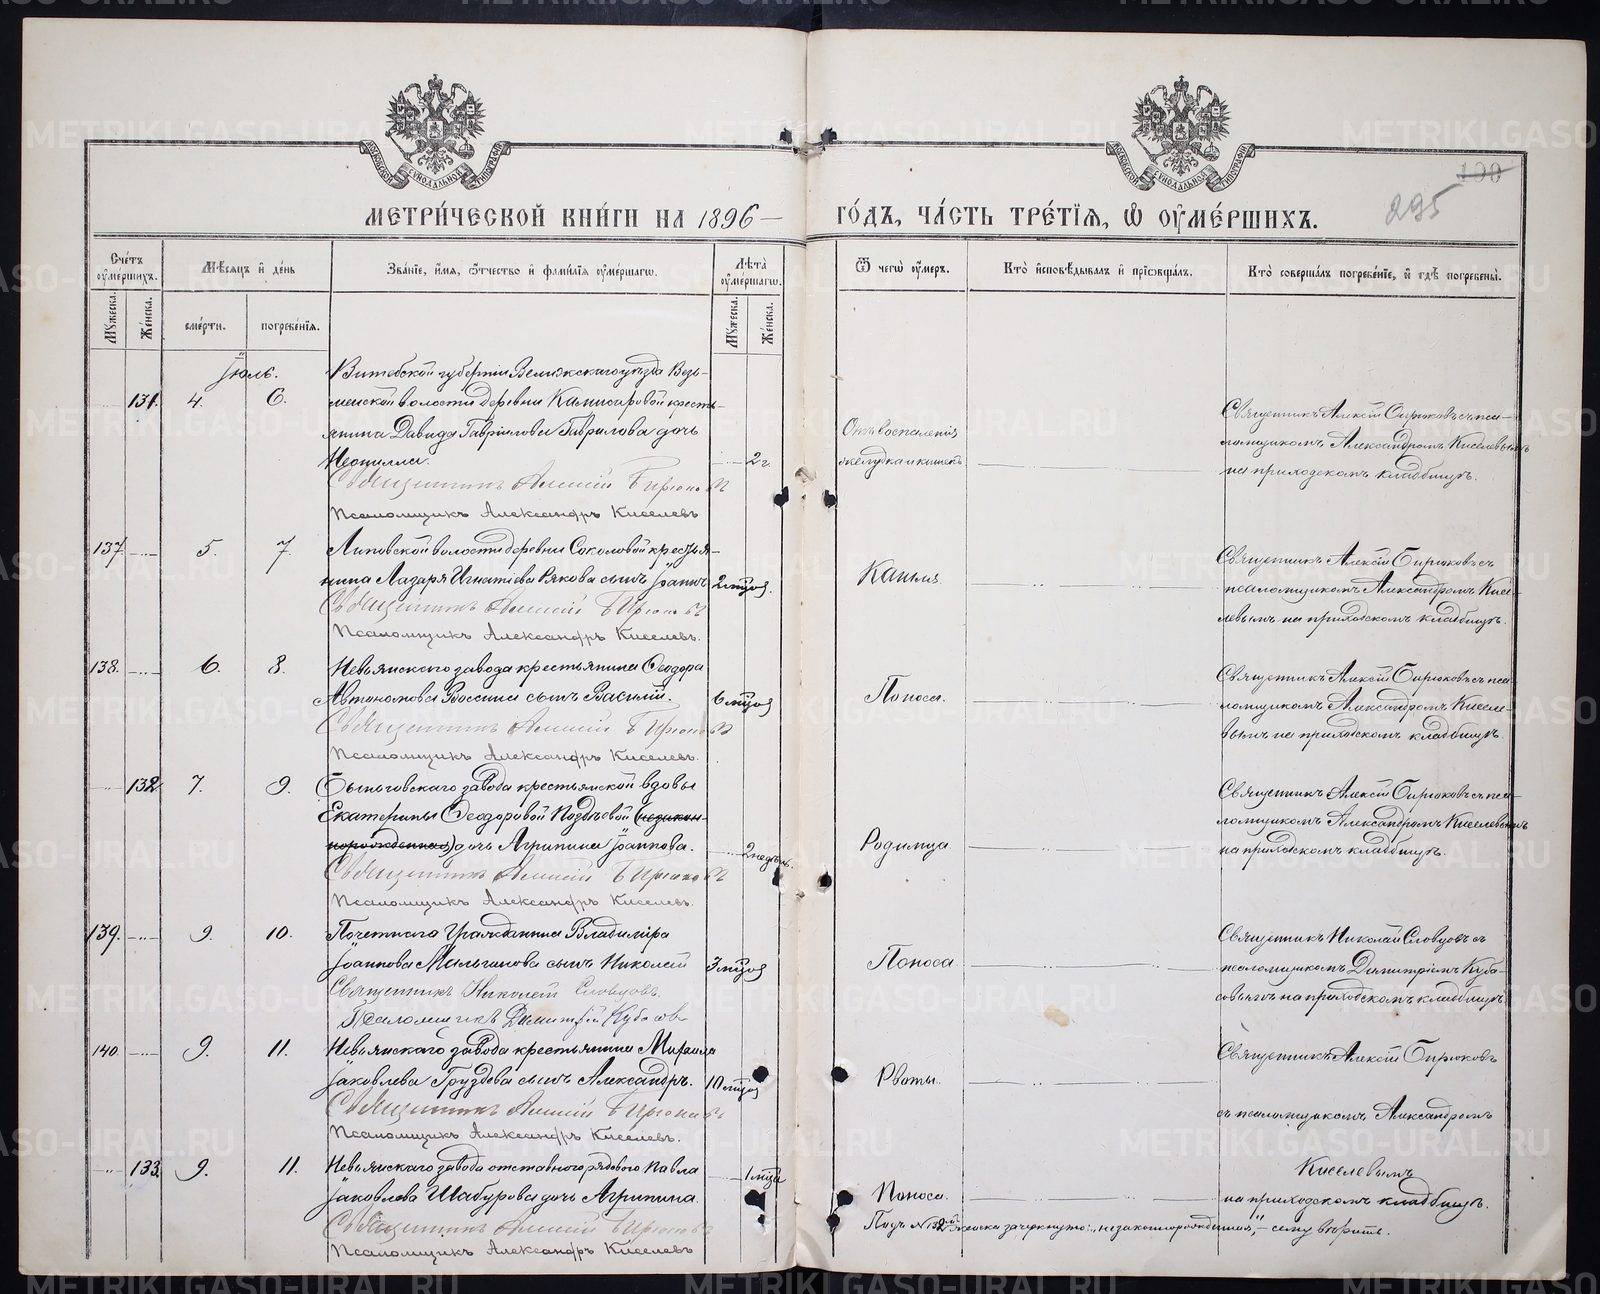 МЕТРИ́ЧЕСКОЙ КНИ́ГИ НА 1896 — ГО́ДЪ, ЧА́СТЬ ТРЕ́ТІѦ, Ѽ ОУ҆МЕ́РШИХЪ.
190
295
Сче́тъ оу҆ме́ршихъ.
Мѣ́сяцъ и҆ де́нь
Зва́ніе, и҆́мя, ѻ҆́тчество и҆ фами́лія оу҆ме́ршагѡ.
Лѣта̀ оу҆ме́ршагѡ.
Ѿ чегѡ̀ оу҆́меръ.
Кто̀ и҆сповѣ́дывалъ и҆ пріѻбща́лъ.
Кто̀ соверша́лъ погребе́ніе, и҆ гдѣ̀ погребены̀.
Му́жеска. Же́нска. сме́рти. погребе́нія. Му́жеска. Же́нска.
Іюль.
131. 4. 6.
Витебской губерніи Велижскаго уѣзда
менской волости деревни Комисаровой кресть-
янина Давида Гавріилова Гаврилова дочь
Неонилла. 2 г.
Священникъ Алексій Бирюковъ
Псаломщикъ Александръ Киселевъ
Отъ воспаленія
желудка и кишекъ
Священникъ Алексій Бирюковъ съ пса-
ломщикомъ Александромъ Киселевымъ
на приходскомъ кладбищѣ.
137 5. 7.
Липовской волости деревни Соколовой крестья-
нина Лазаря Игнатіева Рякова сынъ Іоаннъ 2 мцов.
Священникъ Алексій Бирюковъ
Псаломщикъ Александръ Киселевъ.
Кашля
Священникъ Алексій Бирюковъ съ
псаломщикомъ Александромъ Кисе-
левымъ на приходскомъ кладбищѣ.
138. 6. 8.
Невьянскаго завода крестьянина Ѳеодора
Автономова сынъ Василій. 6 мцов
Священникъ Алексій Бирюковъ
Псаломщикъ Александръ Киселевъ.
Поноса.
Священникъ Алексій Бирюковъ съ пса-
ломщикомъ Александромъ Киселе-
вымъ на приходскомъ кладбищѣ.
132 7. 9.
Быньговскаго завода крестьянской вдовы
Екатерины Ѳеодоровой Поздѣевой (незакон-
норожденная) дочь Агрипина Іоаннова. 2 недѣли.
Священникъ Алексій Бирюковъ
Псаломщикъ Александръ Киселевъ.
Родимца
Священникъ Алексій Бирюковъ съ пса-
ломщикомъ Александромъ Киселевымъ
на приходскомъ кладбищѣ.
139. 9. 10.
Почетнаго Гражданина Владиміра
Іоаннова сынъ Николай 3 мцов
Священникъ Николай Словцовъ.
Псаломщикъ Димитрій Кубасов
Поноса
Священникъ Николай Словцовъ съ
псаломщикомъ Димитріемъ Куба-
совымъ на приходскомъ кладбищѣ
140. 9. 11.
Невьянскаго завода крестьянина
Іаковлева Груздева сынъ Александръ. 10 мцов
Священникъ Алексій Бирюковъ
Псаломщикъ Александръ Киселевъ.
Рвоты.
Священникъ Алексій Бирюковъ
съ псаломщикомъ Александромъ
Киселевымъ
133. 9. 11.
Невьянскаго завода отставного рядового Павла 1 мца
Іаковлева Шабурова дочь Агрипина.
Священникъ Алексій Бирюковъ
Псаломщикъ Александръ Киселевъ
Поноса.
на приходскомъ кладбищѣ.
Подъ № 132 женска зачеркнуто: „незаконнорожденная", — сему вѣрить.
METRIKI.GASO-URAL.RU